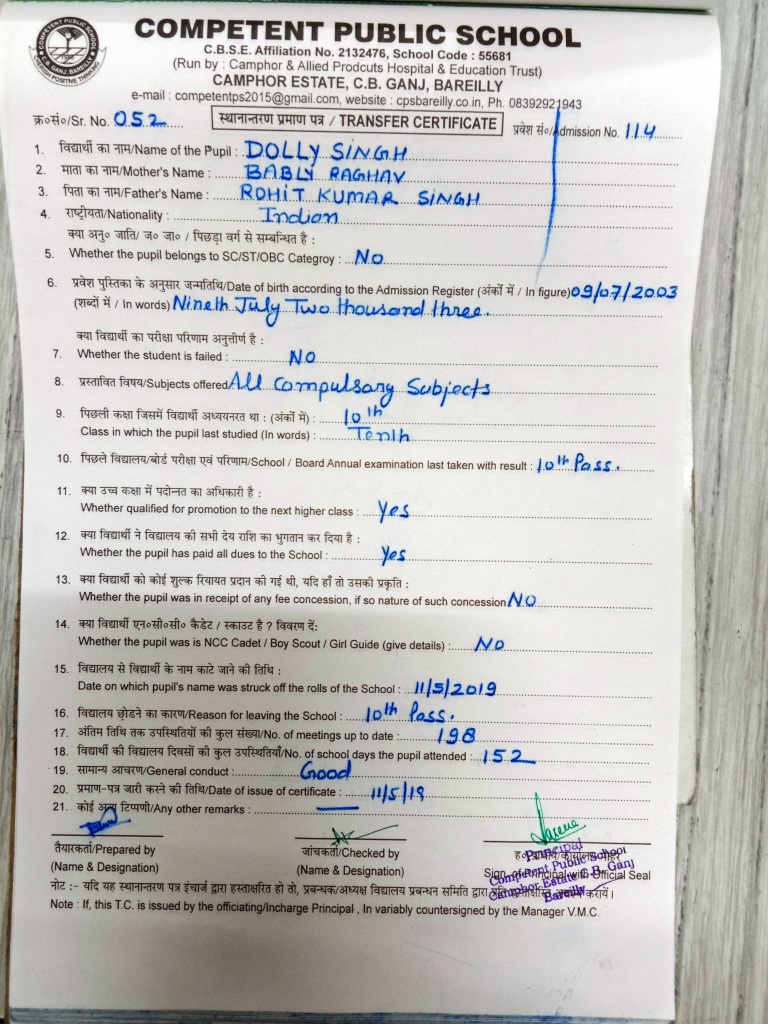 COMPETENT PUBLIC SCHOOL
COMPETENT PUBLIC SCHOOL
C.B. GANJ, BAREILLY
C.B.S.E. Affiliation No. 2132476, School Code : 55681
(Run by : Camphor & Allied Prodcuts Hospital & Education Trust)
CAMPHOR ESTATE, C.B. GANJ, BAREILLY
e-mail : competentps2015@gmail.com, website : cpsbareilly.co.in, Ph. 08392921943
क्र०सं०/Sr. No. 052
स्थानान्तरण प्रमाण पत्र / TRANSFER CERTIFICATE
प्रवेश सं०/Admission No. 114
1. विद्यार्थी का नाम/Name of the Pupil : DOLLY SINGH
2. माता का नाम/Mother's Name : BABLY RAGHAV
3. पिता का नाम/Father's Name : ROHIT KUMAR SINGH
4. राष्ट्रीयता/Nationality : Indian
क्या अनु० जाति/ ज० जा० / पिछड़ा वर्ग से सम्बन्धित है :
5. Whether the pupil belongs to SC/ST/OBC Categroy : No
6. प्रवेश पुस्तिका के अनुसार जन्मतिथि/Date of birth according to the Admission Register (अंकों में / In figure) 09/07/2003
(शब्दों में / In words) Nineth July Two thousand three.
क्या विद्यार्थी का परीक्षा परिणाम अनुत्तीर्ण है :
7. Whether the student is failed : NO
8. प्रस्तावित विषय/Subjects offered All Compulsary Subjects
9. पिछली कक्षा जिसमें विद्यार्थी अध्ययनरत था : (अंकों में) : 10th
Class in which the pupil last studied (In words) : Tenth
10. पिछले विद्यालय/बोर्ड परीक्षा एवं परिणाम/School / Board Annual examination last taken with result : 10th Pass.
11. क्या उच्च कक्षा में पदोन्नत का अधिकारी है :
Whether qualified for promotion to the next higher class : Yes
12. क्या विद्यार्थी ने विद्यालय की सभी देय राशि का भुगतान कर दिया है :
Whether the pupil has paid all dues to the School : Yes
13. क्या विद्यार्थी को कोई शुल्क रियायत प्रदान की गई थी, यदि हाँ तो उसकी प्रकृति :
Whether the pupil was in receipt of any fee concession, if so nature of such concession NO
14. क्या विद्यार्थी एन०सी०सी० कैडेट / स्काउट है ? विवरण दें:
Whether the pupil was is NCC Cadet / Boy Scout / Girl Guide (give details) : NO
15. विद्यालय से विद्यार्थी के नाम काटे जाने की तिथि :
Date on which pupil's name was struck off the rolls of the School : 11/5/2019
16. विद्यालय छोडने का कारण/Reason for leaving the School : 10th Pass.
17. अंतिम तिथि तक उपस्थितियों की कुल संख्या/No. of meetings up to date : 198
18. विद्यार्थी की विद्यालय दिवसों की कुल उपस्थितियाँ/No. of school days the pupil attended : 152
19. सामान्य आचरण/General conduct : Good
20. प्रमाण-पत्र जारी करने की तिथि/Date of issue of certificate : 11/5/19
21. कोई अन्य टिप्पणी/Any other remarks : —
तैयारकर्ता/Prepared by
(Name & Designation)
जांचकर्ता/Checked by
(Name & Designation)
Sign. of Principal with Official Seal
Principal
Competent Public School
Camphor Estate, C.B. Ganj
Bareilly
नोट :- यदि यह स्थानान्तरण पत्र इंचार्ज द्वारा हस्ताक्षरित हो तो, प्रबन्धक/अध्यक्ष विद्यालय प्रबन्धन समिति द्वारा करायें।
Note : If, this T.C. is issued by the officiating/Incharge Principal , In variably countersigned by the Manager V.M.C.